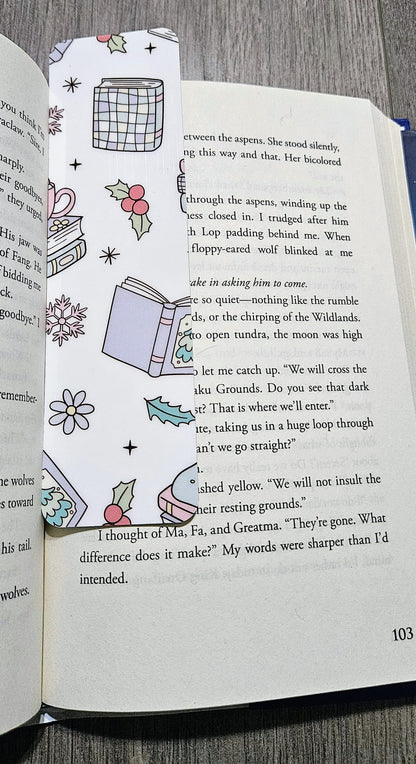 you think I'm
raclaw. "Sure, I
harply.
eir goodbyes,
" they urged
His jaw was
of Fang. He
f bidding me
ck.
goodbye." I
remember-
he wolves
es toward
his tail.
wolves.
etween the aspens. She stood silently,
ng this way and that. Her bicolored
through the aspens, winding up the
ness closed in. I trudged after him
h Lop padding behind me. When
floppy-eared wolf blinked at me
ake in asking him to come.
re so quiet—nothing like the rumble
ds, or the chirping of the Wildlands.
to open tundra, the moon was high
o let me catch up. "We will cross the
aku Grounds. Do you see that dark
st? That is where we'll enter."
ute, taking us in a huge loop through
an't we go straight?"
n.
shed yellow. "We will not insult the
heir resting grounds."
I thought of Ma, Fa, and Greatma. "They're gone. What
difference does it make?" My words were sharper than I'd
intended.
103